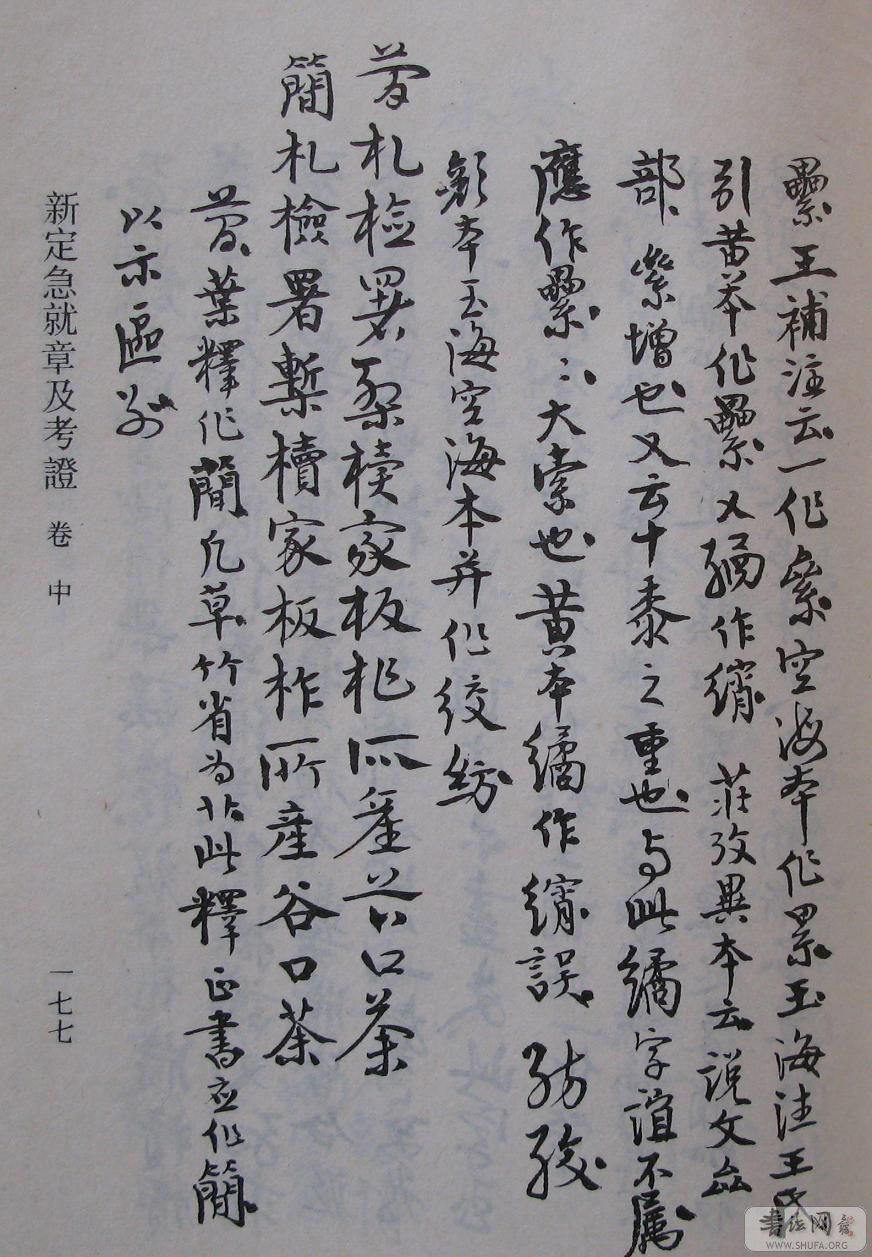 纍王補注云一作絫空海本作累玉海注王氏
引黄本作纍又繘作繘 莊攷異本云說文厽
部絫增也又云十黍之重也与此繘字誼不属
應作纍纍大索也黄本繘作繘誤 紡絞
顏本玉海空海本并作絞紡
简札检署椠牍家板柞所產谷口茶
簡札檢署槧牘家板柞所產谷口茶
葉釋作蕳凡草竹省为此釋正書应作簡
以示區别
新定急就章及考證 卷中
一七七
書法网
WWW.SHUFA.ORG